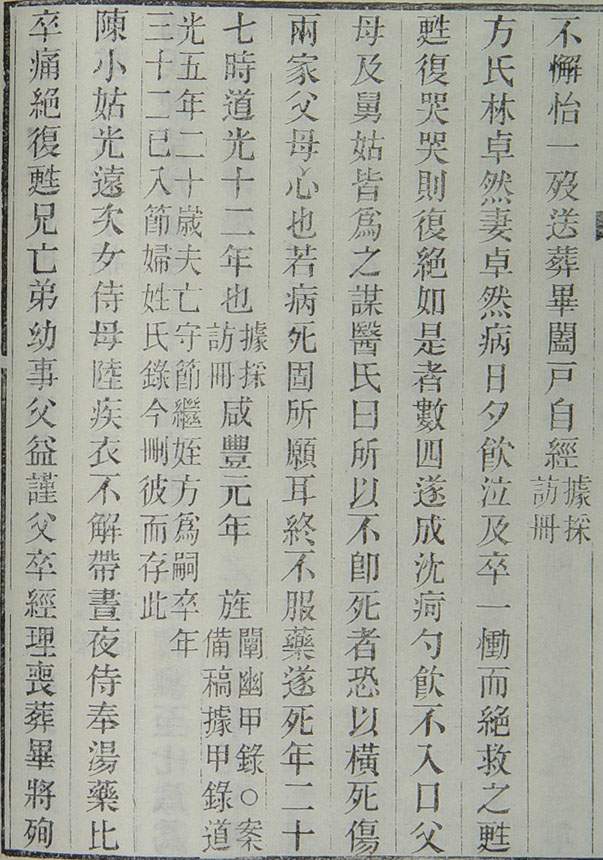 不懈怡一歿送葬畢闔戸自經據採訪冊
方氏林卓然妻卓然病日夕飮泣及卒一慟而絕救之甦
甦復哭哭則復絕如是者數四遂成沈疴勺飮不入口父
母及舅姑皆爲之謀醫氏曰所以不卽死者恐以橫死傷
兩家父母心也若病死固所願耳終不服藥遂死年二十
七時道光十二年也據採訪冊咸豐元年 旌闡幽甲錄○案備稿據甲錄道
光五年二十歲夫亡守節繼姪方爲嗣卒年
三十二已入節婦姓氏錄今刪彼而存此
陳小姑光遠次女侍母陸疾衣不解帶晝夜侍奉湯藥比
卒痛絕復甦兄亡弟幼事父益謹父卒經理喪葬畢將殉